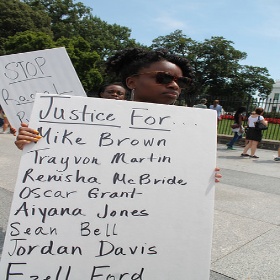 STOP
Justice For....
Mike Brown
Trayvon Martin
Renisha McBride
Oscar Grant
Aiyana Jones
Sean Bell
Jordan Davis
Ezell Ford